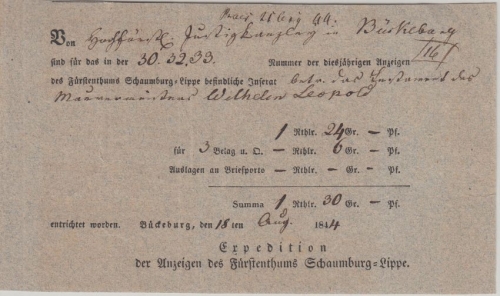 Praes 25 Aug 44.
Von Hochfürstl. Justizkanzley in Bückeburg
16
sind für das in der 30. 32. 33. Nummer der diesjährigen Anzeigen
des Fürstenthums Schaumburg-Lippe befindliche Inserat betr. das Testament des
Mauermeisters Wilhelm Leopold
1 Rthlr. 24 Gr. — Pf.
für 3 Belag u. Q. — Rthlr. 6 Gr. — Pf.
Auslagen an Briefporto — Rthlr. — Gr. — Pf.
Summa 1 Rthlr. 30 Gr. — Pf.
entrichtet worden. Bückeburg, den 18ten Aug. 1844
Expedition
der Anzeigen des Fürstenthums Schaumburg-Lippe.